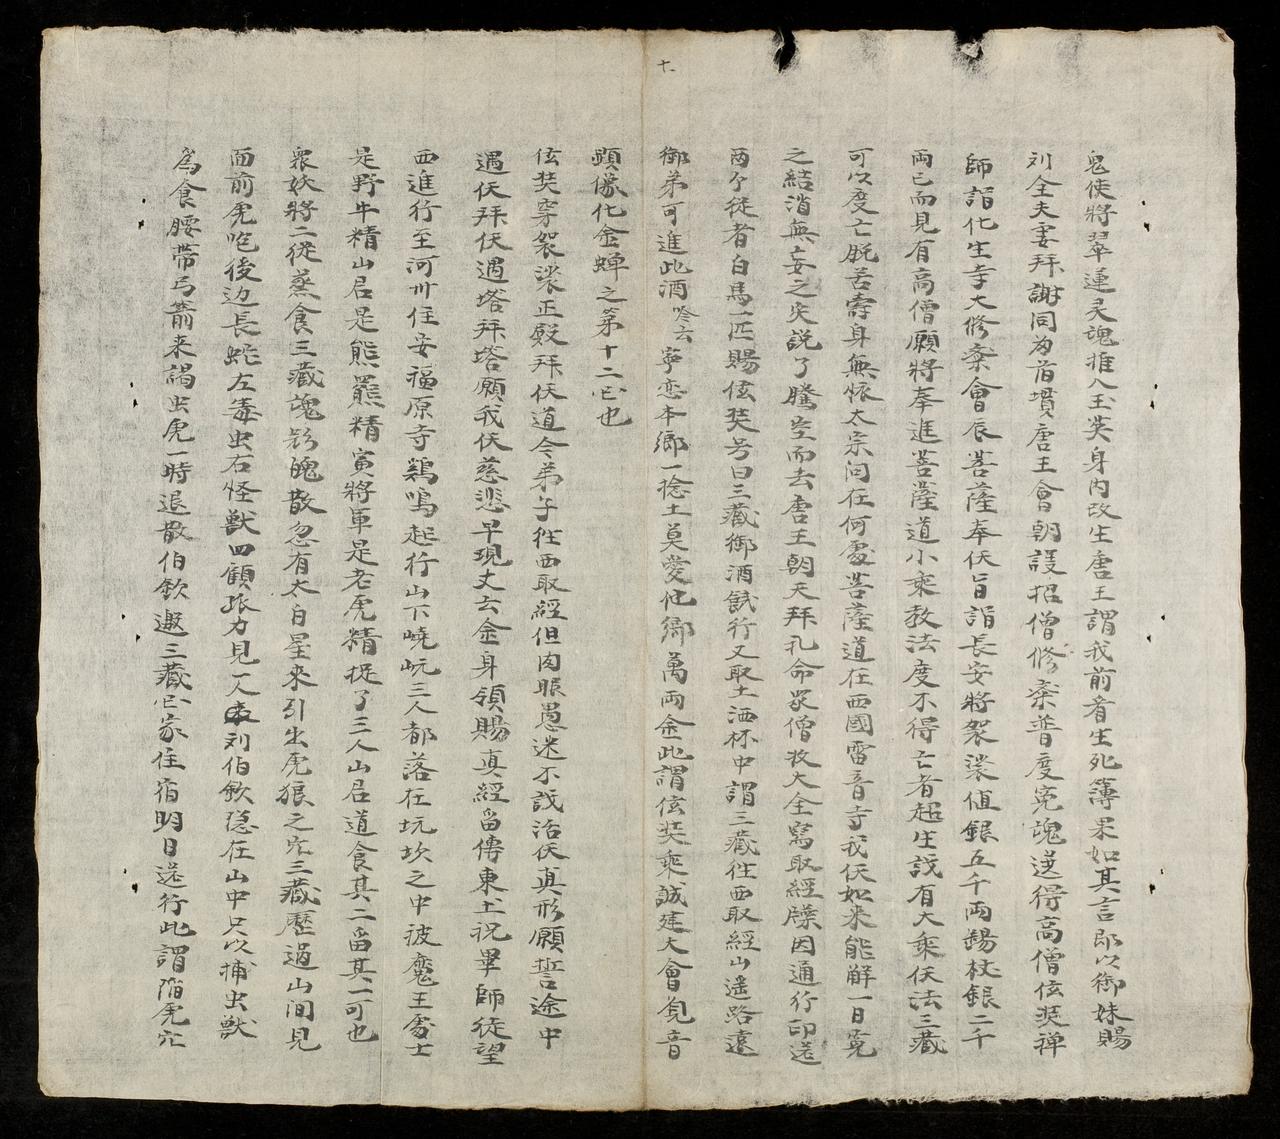 十
鬼使將翠蓮灵魂推入玉英身內改生唐王謂我前看生死簿果如其言即以御妹賜
刘全夫妻拜謝同为首墳唐王會朝設招僧修斋普度冤魂選得高僧伭奘禅
師詣化生寺大修斋會辰菩薩奉伏旨詣長安將袈裟值銀五千両錫杖銀二千
両已而見有高僧願將奉進菩薩道小乘教法度不得亡者超生説有大乘伏法三藏
可以度亡脱苦壽身無恢太宗问在何處菩薩道在西國雷音寺我伏如来能解一日冤
之結消無妄之灾説了騰空而去唐王朝天拜礼命眾僧牧大全寫取經牒因通行印送
两个徒者白馬一匹賜伭奘号曰三藏御酒餞行又取土洒杯中謂三藏徃西取經山遥路遠
御弟可進此酒吟云寧恋本鄉一捻土莫愛他鄉萬両金此謂伭奘乘誠建大會覌音
顕像化金蝉之第十二巳也
伭奘穿袈裟正殿拜伏道今弟子徃西取經但肉眼愚迷不誐活伏真形願誓途中
遇伏拜伏遇塔拜塔願我伏慈悲早現丈六金身領賜真經畱傳東𡈽祝畢師徒望
西進行至河州住安福原寺鷄鳴起行山下嶢岏三人都落在坑坎之中被魔王䖏士
是野牛精山君是熊羆精寅將軍是老虎精捉了三人山君道食其二畱其一可也
衆妖將二從蒸食三藏魂𩲸魄散忽有太白星來引出虎狼之穴三藏歷過山间見
面前虎咆後边長蛇左毒虫右怪獸四顧張力見一人来刘伯欽隐在山中只以捕虫獸
爲食腰帶弓箭来謁虫虎一時退散伯欽邀三藏囬家住宿明日送行此謂陷虎穴